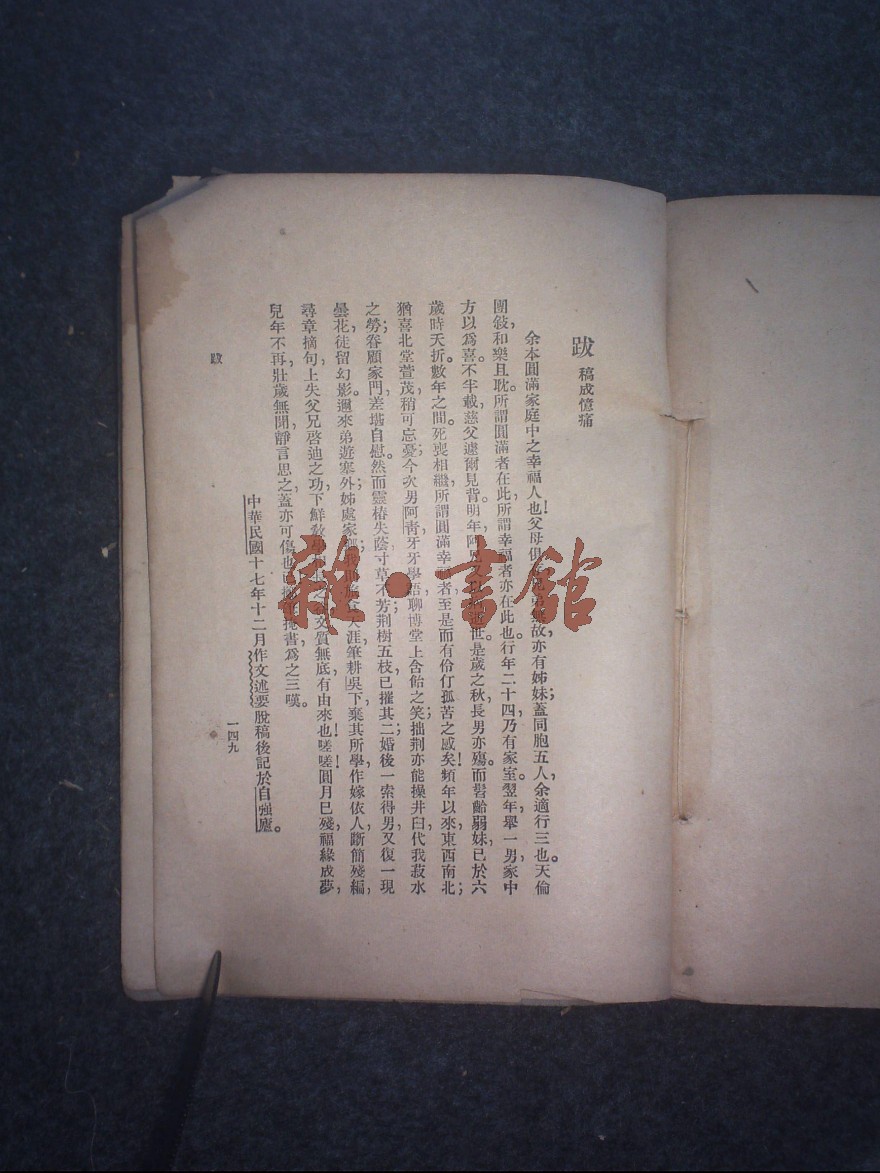 跋 稿成憶痛
余本圓滿家庭中之幸福人也！父母俱存，兄弟無故，亦有姊妹；蓋同胞五人，余適行三也。天倫
團敍，和樂且耽。所謂圓滿者在此，所謂幸福者亦在此也。行年二十四，乃有家室。翌年，舉一男，家中
方以爲喜。不半載，慈父遽爾見背。明年，阿兄又以病逝世。是歲之秋，長男亦殤。而髫齡弱妹，已於六
歲時夭折。數年之間。死喪相繼，所謂圓滿幸福者，至是而有伶仃孤苦之感矣！頻年以來，東西南北；
猶喜北堂萱茂，稍可忘憂；今次男阿靑，牙牙學語，聊博堂上含飴之笑；拙荆亦能操井臼，代我菽水
之勞；眷顧家門，差堪自慰。然而靈椿失蔭，寸草不芳；荆樹五枝，已摧其二；婚後一索得男，又復一現
曇花，徒留幻影。邇來弟遊塞外，姊處家，天涯，筆耕吳下，棄其所學，作嫁依人；斷簡殘編，
尋章摘句；上失父兄啓迪之功，下鮮敎學文質無底，有由來也！嗟嗟！圓月已殘，福緣成夢，
兒年不再，壯歲無聞，靜言思之，蓋亦可傷也！掩書爲之三嘆。
中華民國十七年十二月作文述要脫稿後記於自強廬。
跋
一四九
雜·書館